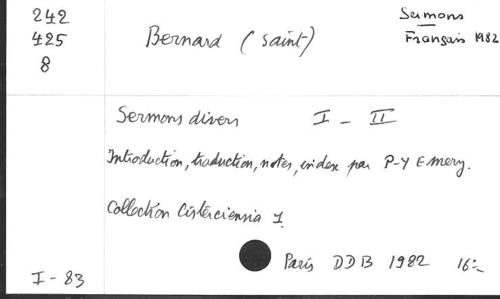 242
425
8
Bernard (saint)
Sermons
Français 1982
Sermons divers I - II
Introduction, traduction, notes, index par P-Y Emery.
Collection Cisterciensia 1.
Paris DDB 1982 16:-
I - 83